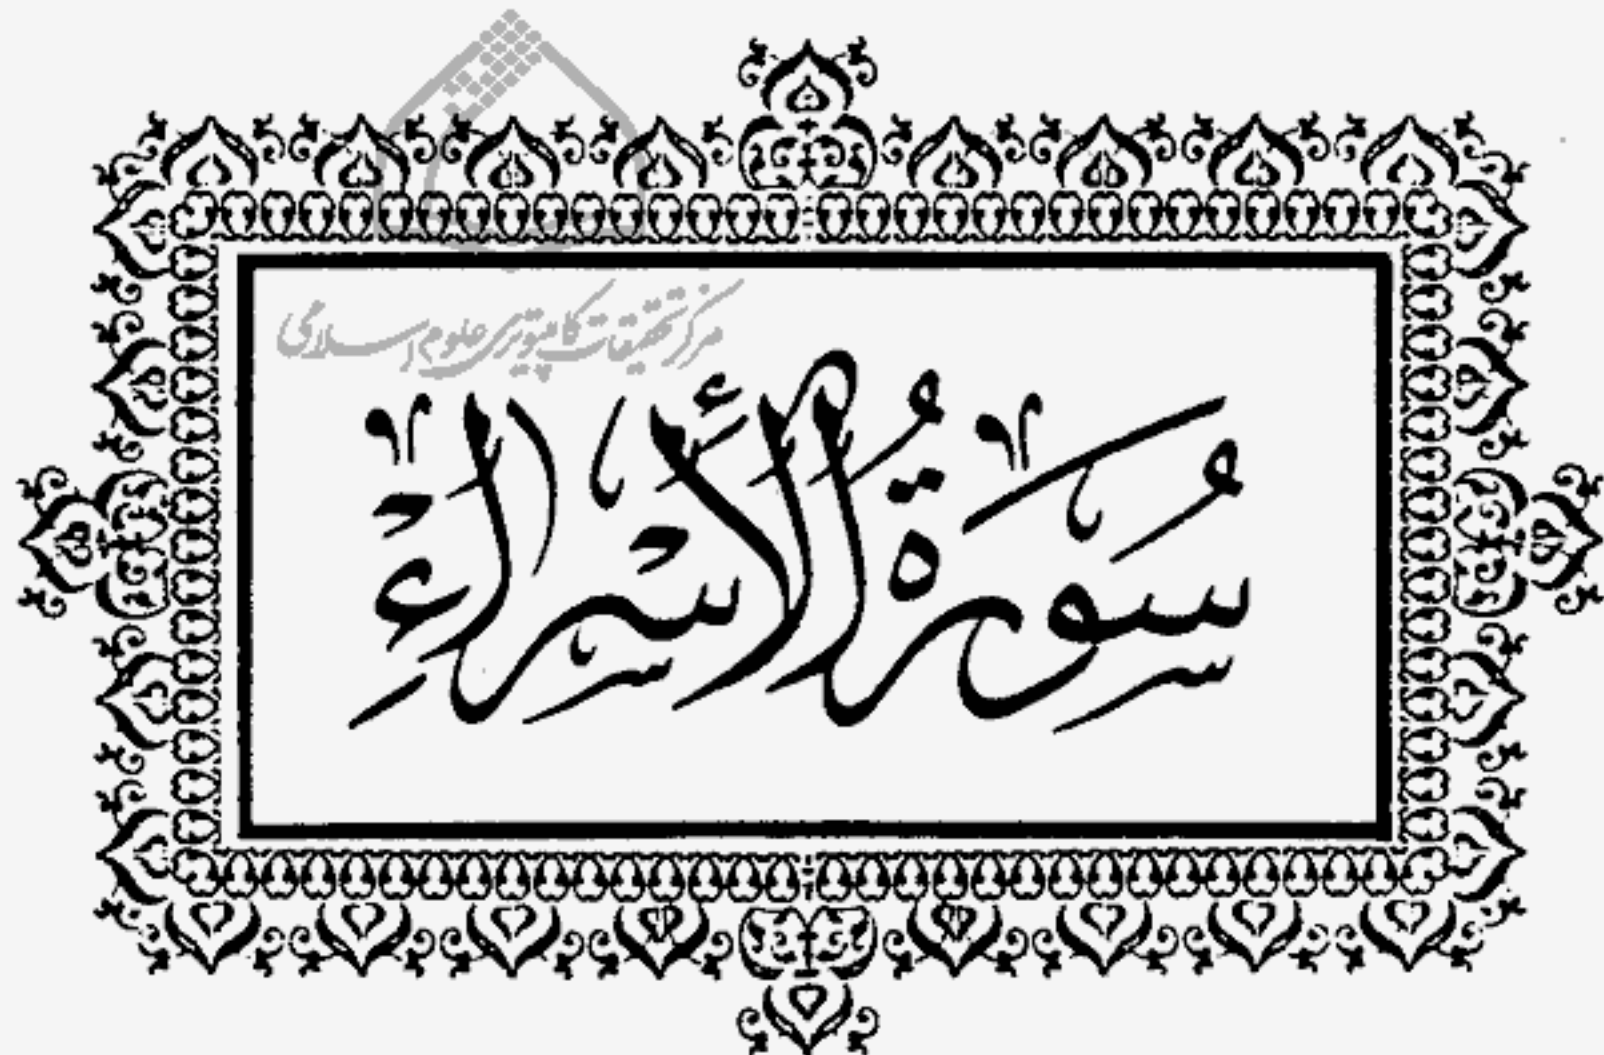 مرکز تحقیقات کامپیوتری علوم اسلامی
سُورَةُ الأَسْراءِ